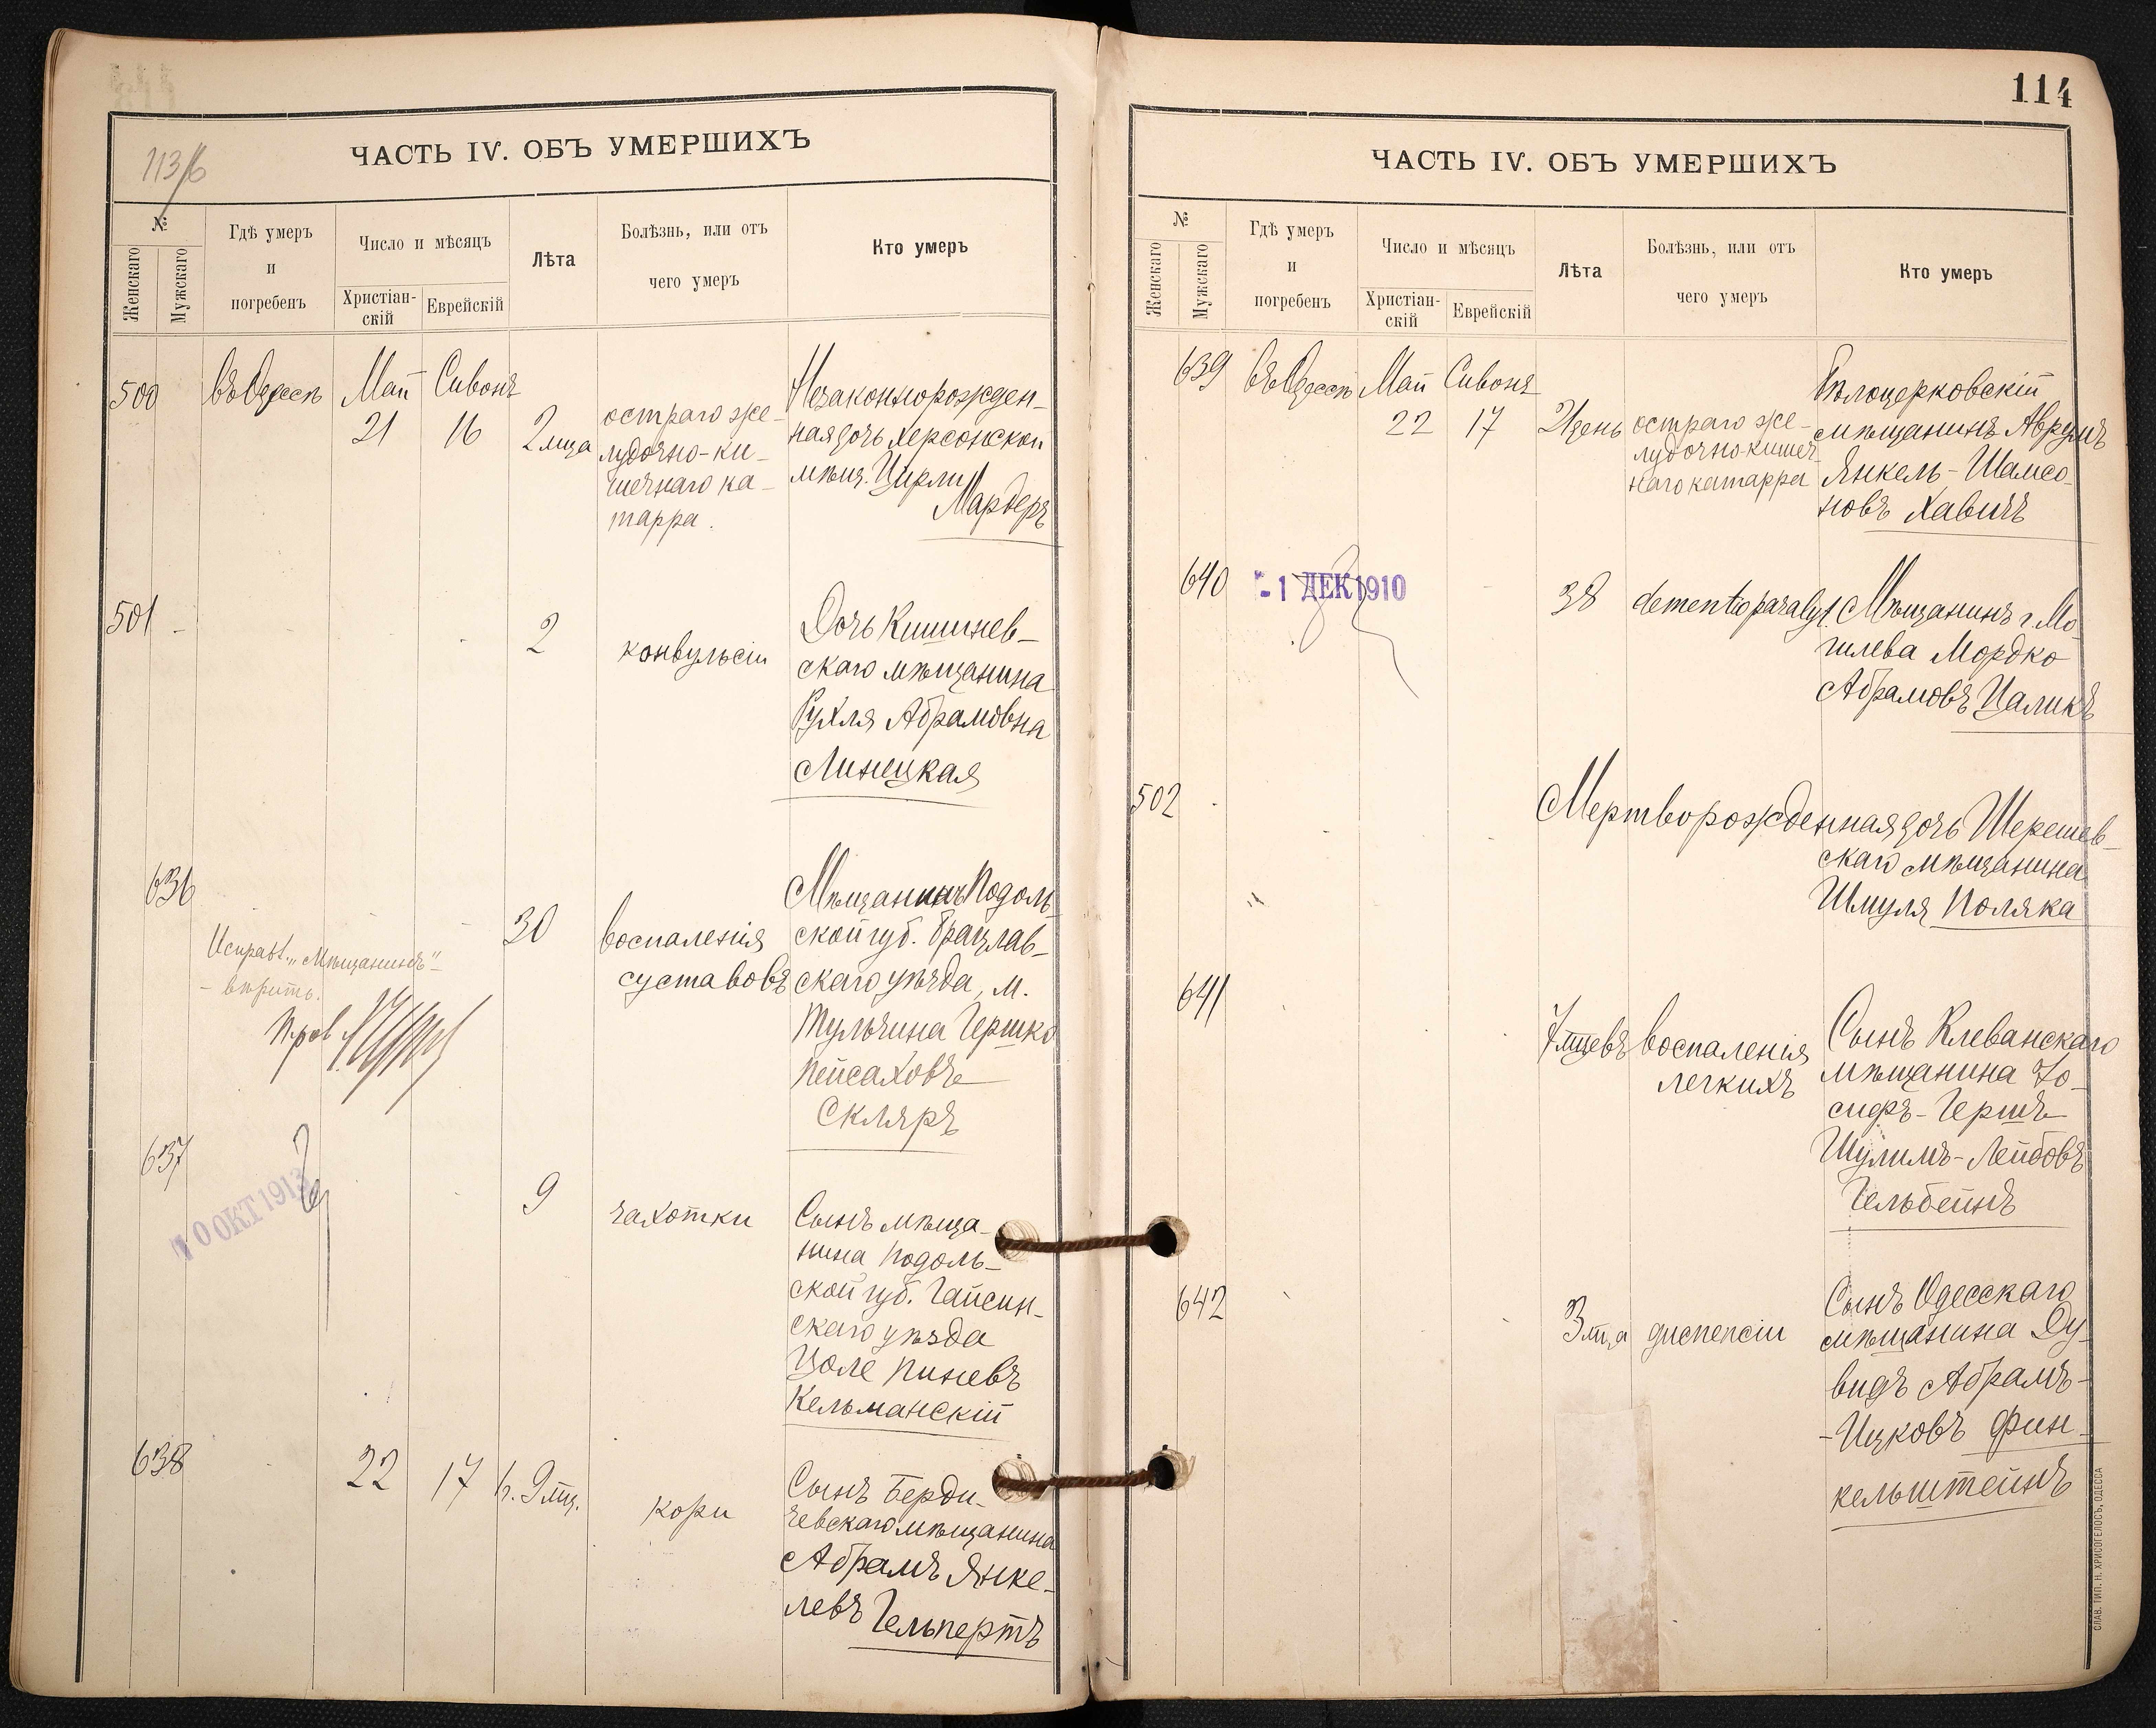 113/б
ЧАСТЬ IV. ОБЪ УМЕРШИХЪ
№
Женскаго
Мужскаго
Гдѣ умеръ
и
погребенъ
Число и мѣсяцъ
Христіан-
скій
Еврейскій
Лѣта
Болѣзнь, или отъ
чего умеръ
Кто умеръ
500
въ Одессѣ
Май
21
Сивонъ
16
2 мца
остраго же-
лудочно-ки-
шечнаго ка-
тарра.
Незаконнорожден-
ная дочь Херсонской
мѣщ. Цирли
Мардеръ
501
2
конвульсіи
Дочь Кишинев-
скаго мѣщанина
Рухля Абрамовна
Линецкая
636
Исправл. „Мѣщанинъ"
- вѣрить.
30
воспаленія
суставовъ
Мѣщанинъ Подоль-
ской губ. Брацлав-
скаго уѣзда, м.
Тульчина Гершко
Пейсаховъ
Скляръ
637
10 ОКТ 1913
9
чахотки
Сынъ мѣща-
нина Подоль-
ской губ. Гайсин-
скаго уѣзда
Цоле Пиневъ
Кельманскій
638
22
17
9 мц.
кори
Сынъ Берди-
чевскаго мѣщанина
Абрамъ Янке-
левъ Гельпертъ
114
ЧАСТЬ IV. ОБЪ УМЕРШИХЪ
№
Женскаго
Мужскаго
Гдѣ умеръ
и
погребенъ
Число и мѣсяцъ
Христіан-
скій
Еврейскій
Лѣта
Болѣзнь, или отъ
чего умеръ
Кто умеръ
639
въ Одессѣ
Май
22
Сивонъ
17
21 день
остраго же-
лудочно-кишеч-
наго катарра
Бѣлоцерковскій
мѣщанинъ Аврумъ
Янкель-Шамсо-
новъ Хавичъ
640
-1 ДЕК 1910
38
dementio paralyt.
Мѣщанинъ г. Мо-
гилева Мордко
Абрамовъ Цаликъ
502
Мертворожденная дочь Шерешев-
скаго мѣщанина
Шмуля Поляка
641
7 мцевъ
воспаленія
легкихъ
Сынъ Клеванскаго
мѣщанина Іо-
сифъ-Гершъ
Шулимъ-Лейбовъ
Гельбейнъ
642
3 мца
диспепсіи
Сынъ Одесскаго
мѣщанина Ду-
видъ Абрамъ-
-Ицковъ Фин-
кельштейнъ
СЛАВ. ТИП. Н. ХРИСОГЕЛОСЪ, ОДЕССА